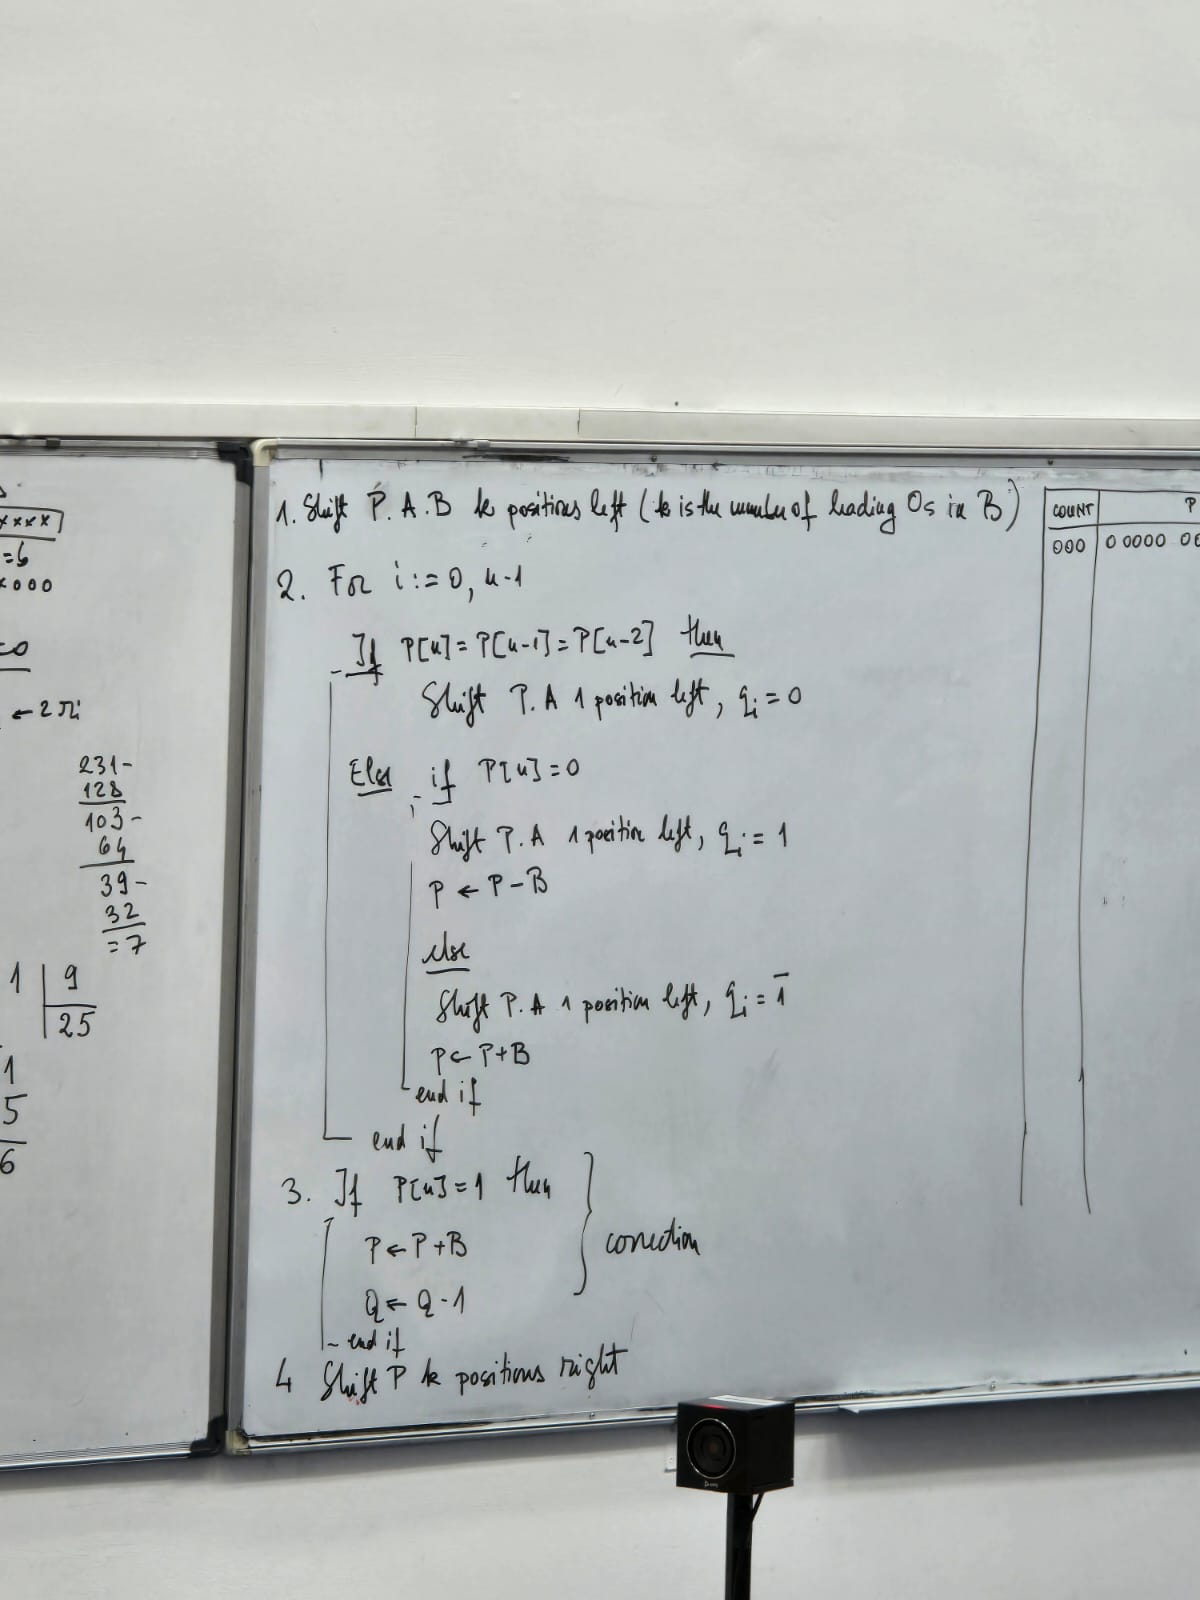 ××××
=6
×000
←2ri
231-
128
103-
64
39-
32
=7
1 | 9
25
1
5
6
1. Shift P.A.B k positions left (k is the number of leading 0s in B)
2. For i:=0, n-1
If P[n]=P[n-1]=P[n-2] then
Shift P.A 1 position left, qi=0
Else if P[n]=0
Shift P.A 1 position left, qi=1
P ← P-B
else
Shift P.A 1 position left, qi=1̄
P ← P+B
end if
end if
3. If P[n]=1 then
P ← P+B
Q ← Q-1
} correction
end if
4 Shift P k positions right
COUNT P
000 0 0000 00